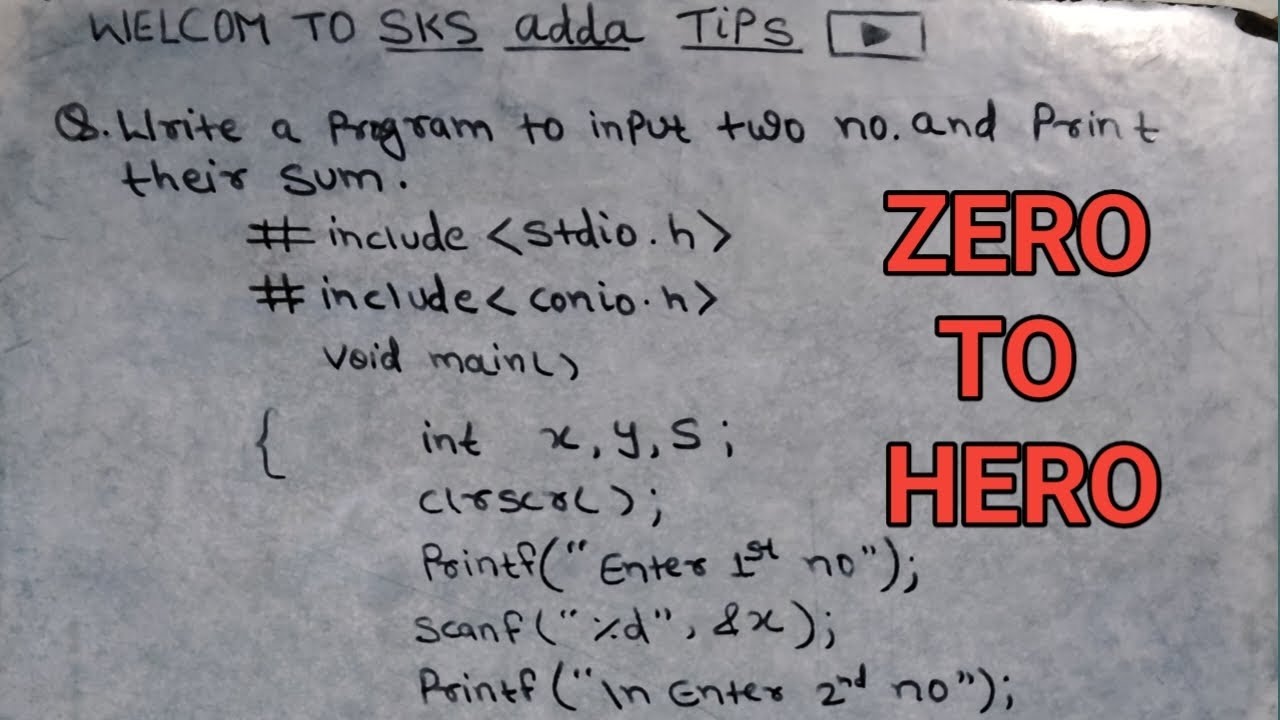 WELCOM TO SKS adda TiPS
Q. Write a Program to input two no. and Print
their sum.
# include <stdio.h>
# include< conio.h>
void main()
{ int x, y, s ;
clrscr( );
Printf("Enter 1st no");
scanf("%d", &x);
Printf("\n Enter 2nd no");
ZERO
TO
HERO